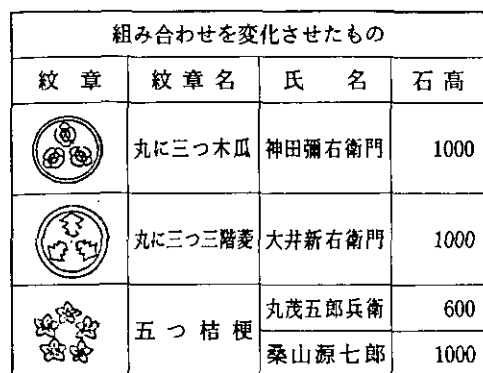 組み合わせを変化させたもの
紋章 紋章名 氏名 石高
丸に三つ木瓜 神田彌右衛門 1000
丸に三つ三階菱 大井新右衛門 1000
五つ桔梗 丸茂五郎兵衛 600
桑山源七郎 1000